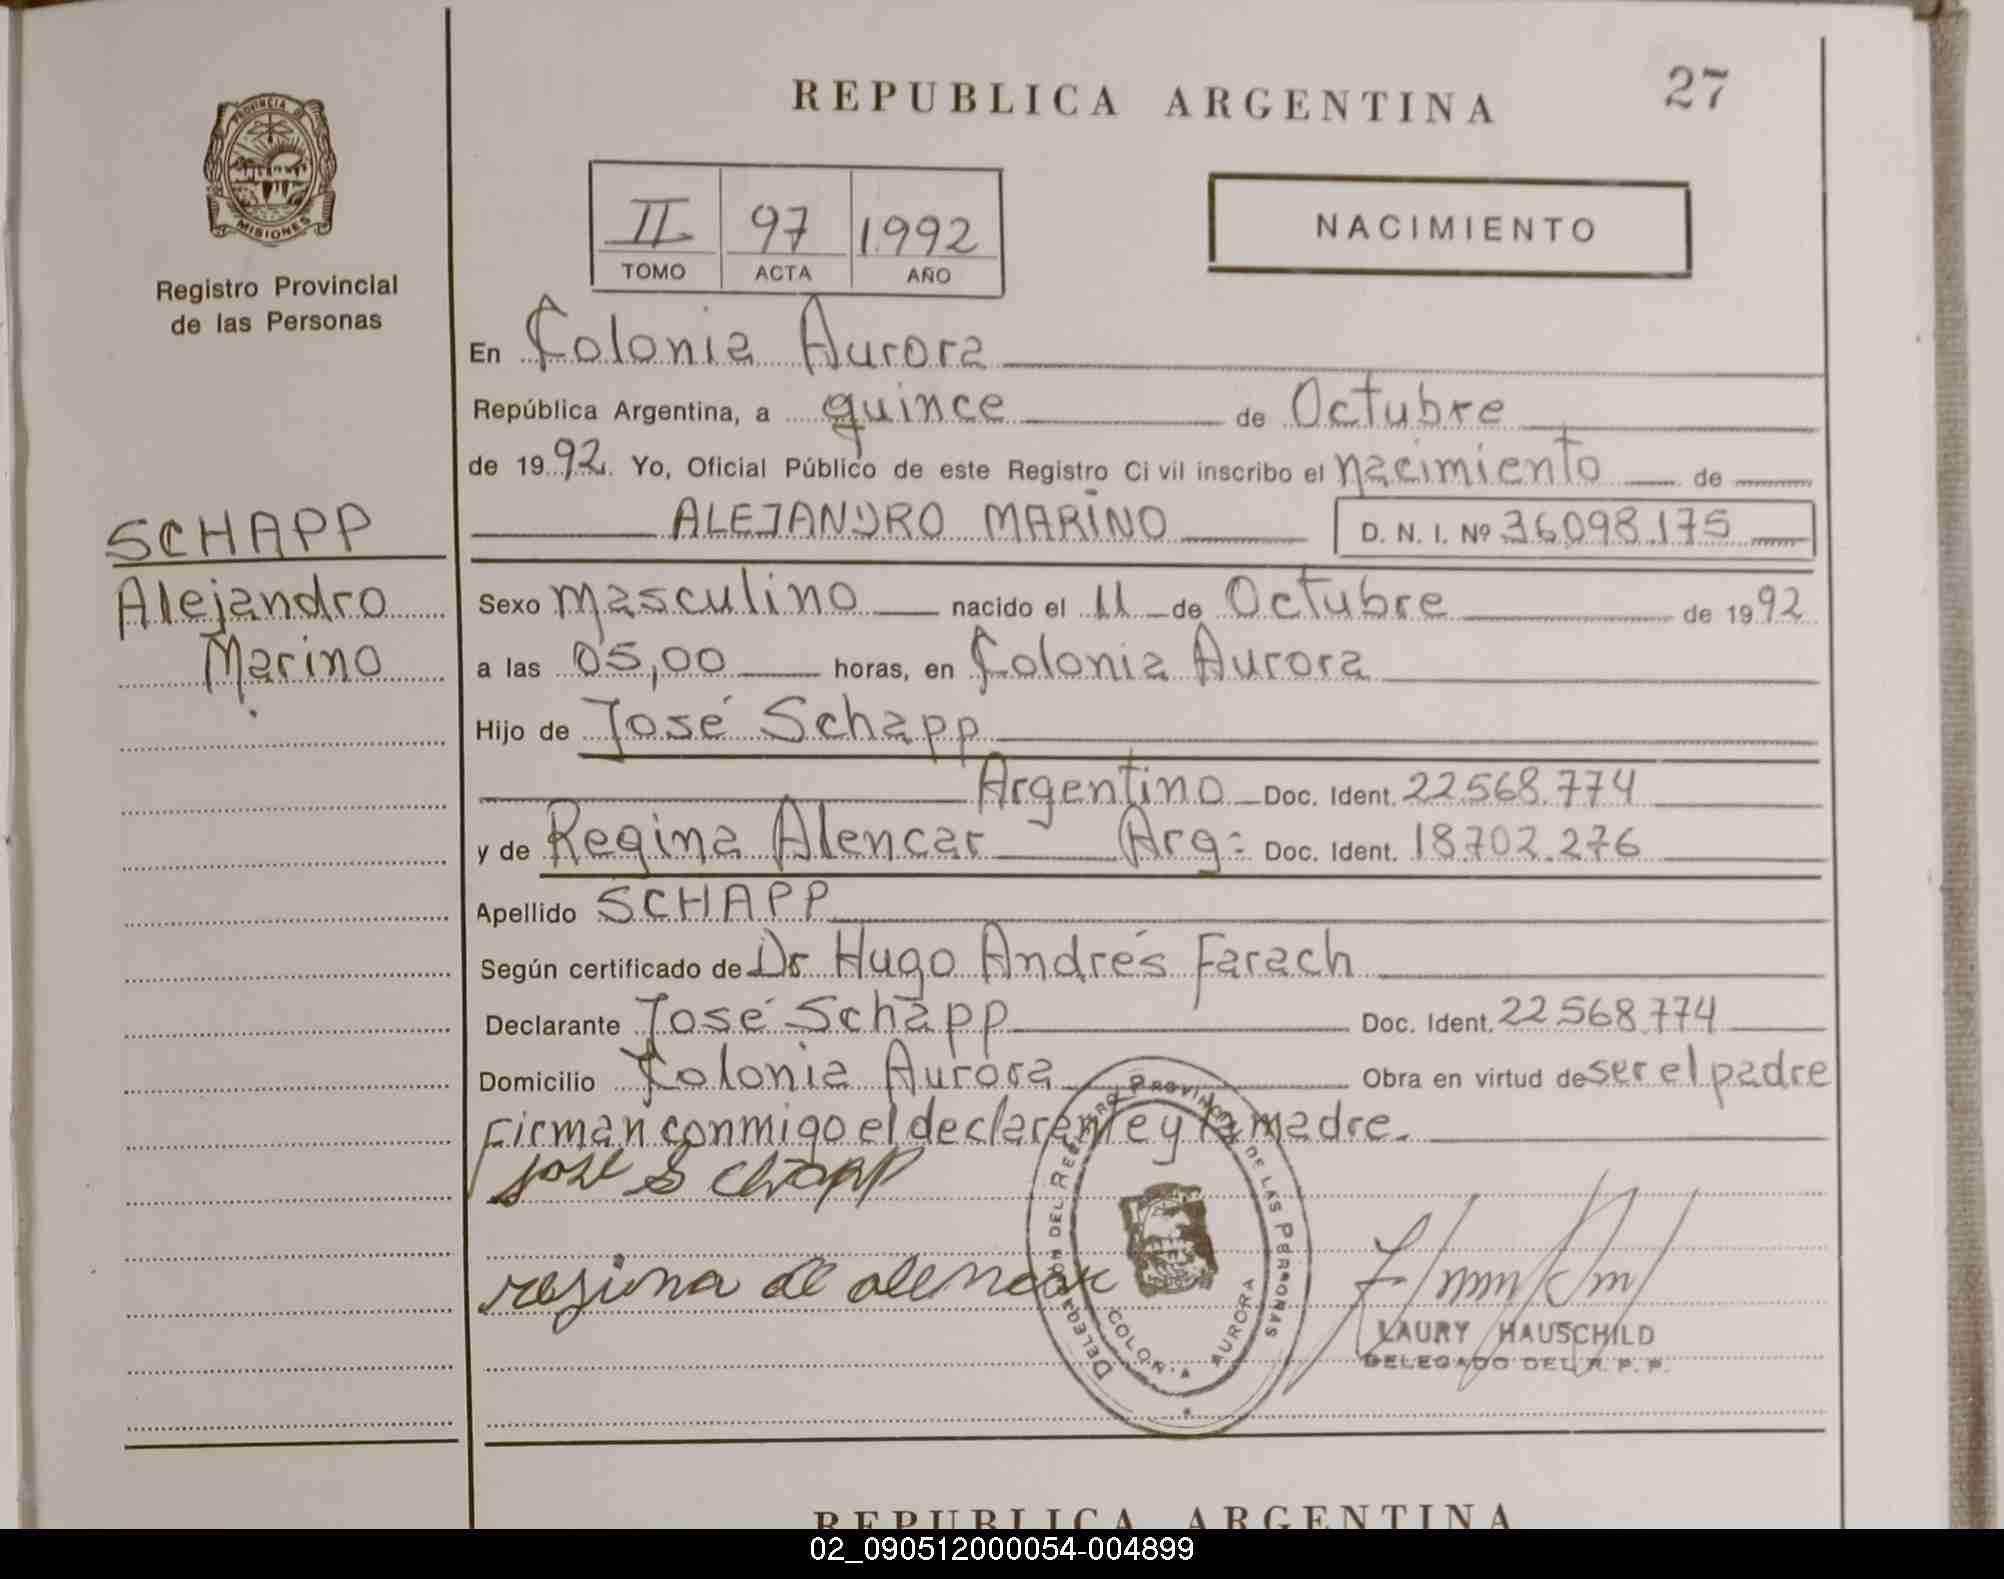 REPUBLICA ARGENTINA
27
PROVINCIA DE
MISIONES
Registro Provincial
de las Personas
II 97 1992
TOMO ACTA AÑO
NACIMIENTO
En Colonia Aurora
República Argentina, a quince de Octubre
de 1992. Yo, Oficial Público de este Registro Civil inscribo el nacimiento de
ALEJANDRO MARINO D. N. I. Nº 36.098.175
SCHAPP
Alejandro
Marino
Sexo masculino nacido el 11 de Octubre de 1992
a las 05,00 horas, en Colonia Aurora
Hijo de José Schapp
Argentino Doc. Ident. 22.568.774
y de Regina Alencar Arg= Doc. Ident. 18.702.276
Apellido SCHAPP
Según certificado de Dr Hugo Andrés Farach
Declarante José Schapp Doc. Ident. 22.568.774
Domicilio Colonia Aurora Obra en virtud de ser el padre
Firman conmigo el declarante y la madre.
José Schapp
regina de alencar
DELEGACION DEL REGISTRO PROVINCIAL DE LAS PERSONAS
COLONIA AURORA
LAURY HAUSCHILD
DELEGADO DEL R. P. P.
REPUBLICA ARGENTINA
02_090512000054-004899